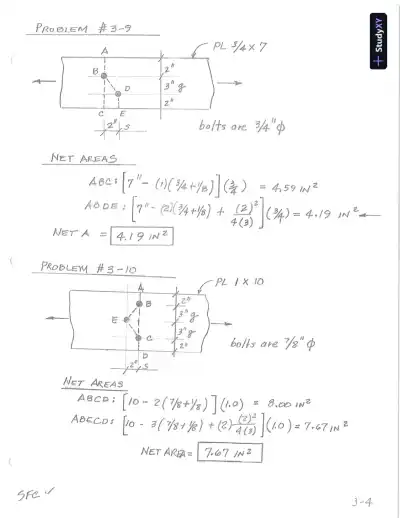 PROBLEM #3-9
PL 3/4 X 7
A
B
D
C E
2" S
2"
3" g
2"
bolts are 3/4" φ
NET AREAS
ABC: [7" - (1)(3/4+1/8)](3/4) = 4.59 IN²
ABDE: [7" - (2)(3/4+1/8) + (2)²/4(3)](3/4) = 4.19 IN² ←
NET A = 4.19 IN²
PROBLEM #3-10
PL 1 X 10
A
B
E
C
D
2" S
2"
3" g
3" g
2"
bolts are 7/8" φ
NET AREAS
ABCD: [10 - 2(7/8+1/8)](1.0) = 8.00 IN²
ABECD: [10 - 3(7/8+1/8) + (2)(2)²/4(3)](1.0) = 7.67 IN²
NET AREA = 7.67 IN²
SFC
3-4
StudyXY